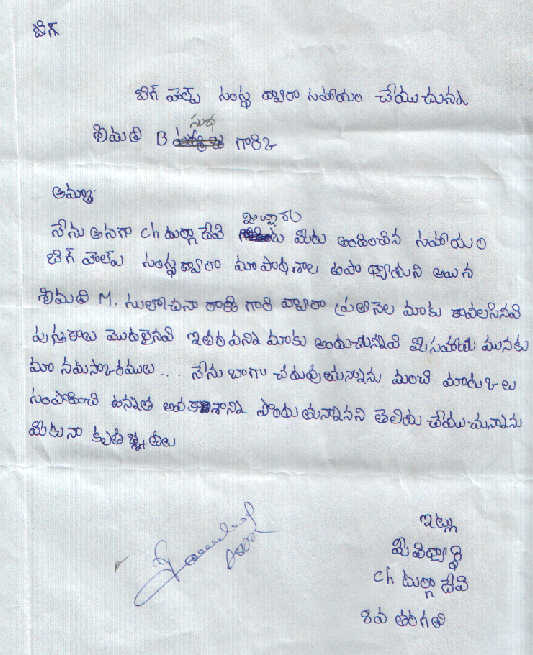 బిగ్
బిగ్ హెల్ప్ సంస్థ ద్వారా సహాయం చేయుచున్న
శ్రీమతి B సుధ గారికి
అమ్మా
నేను అనగా ch దుర్గా దేవి మీరు అందించిన సహాయం
బిగ్ హెల్ప్ సంస్థ ద్వారా మా పాఠశాల ఉపాధ్యాయిని అయిన
శ్రీమతి M. సులోచనా రాణి గారి ద్వారా ప్రతినెల మాకు కావలసినవి
పుస్తకాలు మొదలైనవి ఇతరవన్ని మాకు అందుచున్నవి మీ సహాయమునకు
మా నమస్కారములు ... నేను బాగా చదువుతున్నాను మంచి మార్కులు
సంపాదించి ఉన్నత అవకాశాన్ని పొందుతున్నానని తెలియచేయుచున్నాను
మీకు నా కృతజ్ఞతలు
ఇట్లు
మీ విద్యార్థి
ch దుర్గా దేవి
8వ తరగతి